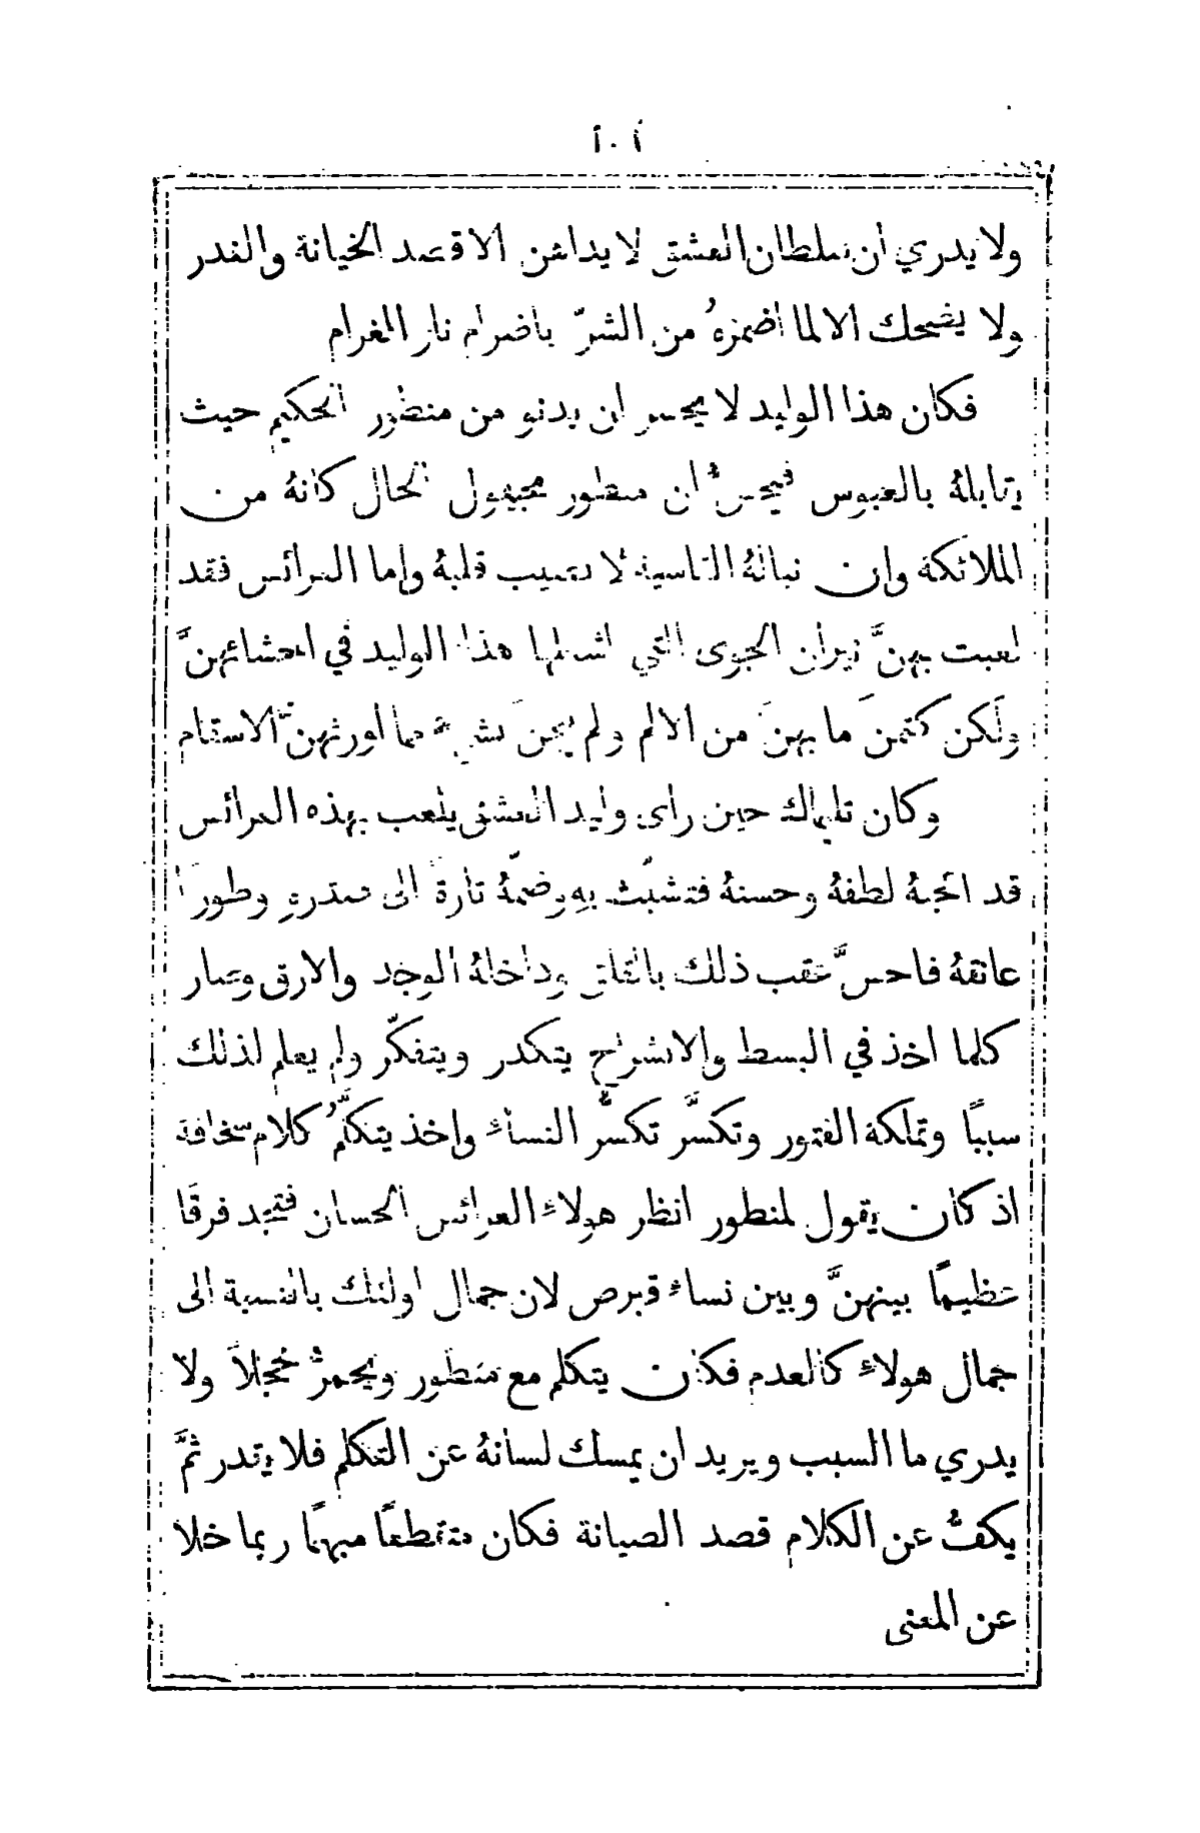 ١٠٢
ولا يدري ان سلطان العشق لا يداعن الا قصد الخيانة والغدر
ولا يضحك الا لما اضمرهُ من الشرّ باضرام نار الغرام
فكان هذا الوليد لا يجسر ان يدنو من منطور الحكيم حيث
يقابلهُ بالعبوس فيحسُّ ان منطور مجهول الحال كانهُ من
الملائكة وان نبالهُ القاسية لا تصيب قلبهُ واما العرائس فقد
لعبت بهنَّ نيران الجوى التي اشعلها هذا الوليد في احشائهنَّ
ولكن كتمنَ ما بهنَ من الالم ولم يبحنَ بشيءٍ مما اورثهنَّ الاسقام
وكان تليماك حين راى وليد العشق يلعب بهذه العرائس
قد اعجبهُ لطفهُ وحسنهُ فتشبَّث بهِ وضمّهُ تارةً الى صدرهِ وطورًا
عانقهُ فاحسَّ عقب ذلك بالقلق وداخلهُ الوجد والارق وصار
كلما اخذ في البسط والانشراح يتكدر ويتفكّر ولم يعلم لذلك
سببًا وتملكهُ الفتور وتكسَّر تكسُّر النساءِ واخذ يتكلَّمُ كلام سخافة
اذ كان يقول لمنطور انظر هولاءِ العرائس الحسان فتجد فرقًا
عظيمًا بينهنَّ وبين نساءِ قبرص لان جمال اولئك بالنسبة الى
جمال هولاءِ كالعدم فكان يتكلم مع منطور ويحمرُّ خجلًا ولا
يدري ما السبب ويريد ان يمسك لسانهُ عن التكلم فلا يقدر ثمَّ
يكفُّ عن الكلام قصد الصيانة فكان متقطعًا مبهمًا ربما خلا
عن المعنى